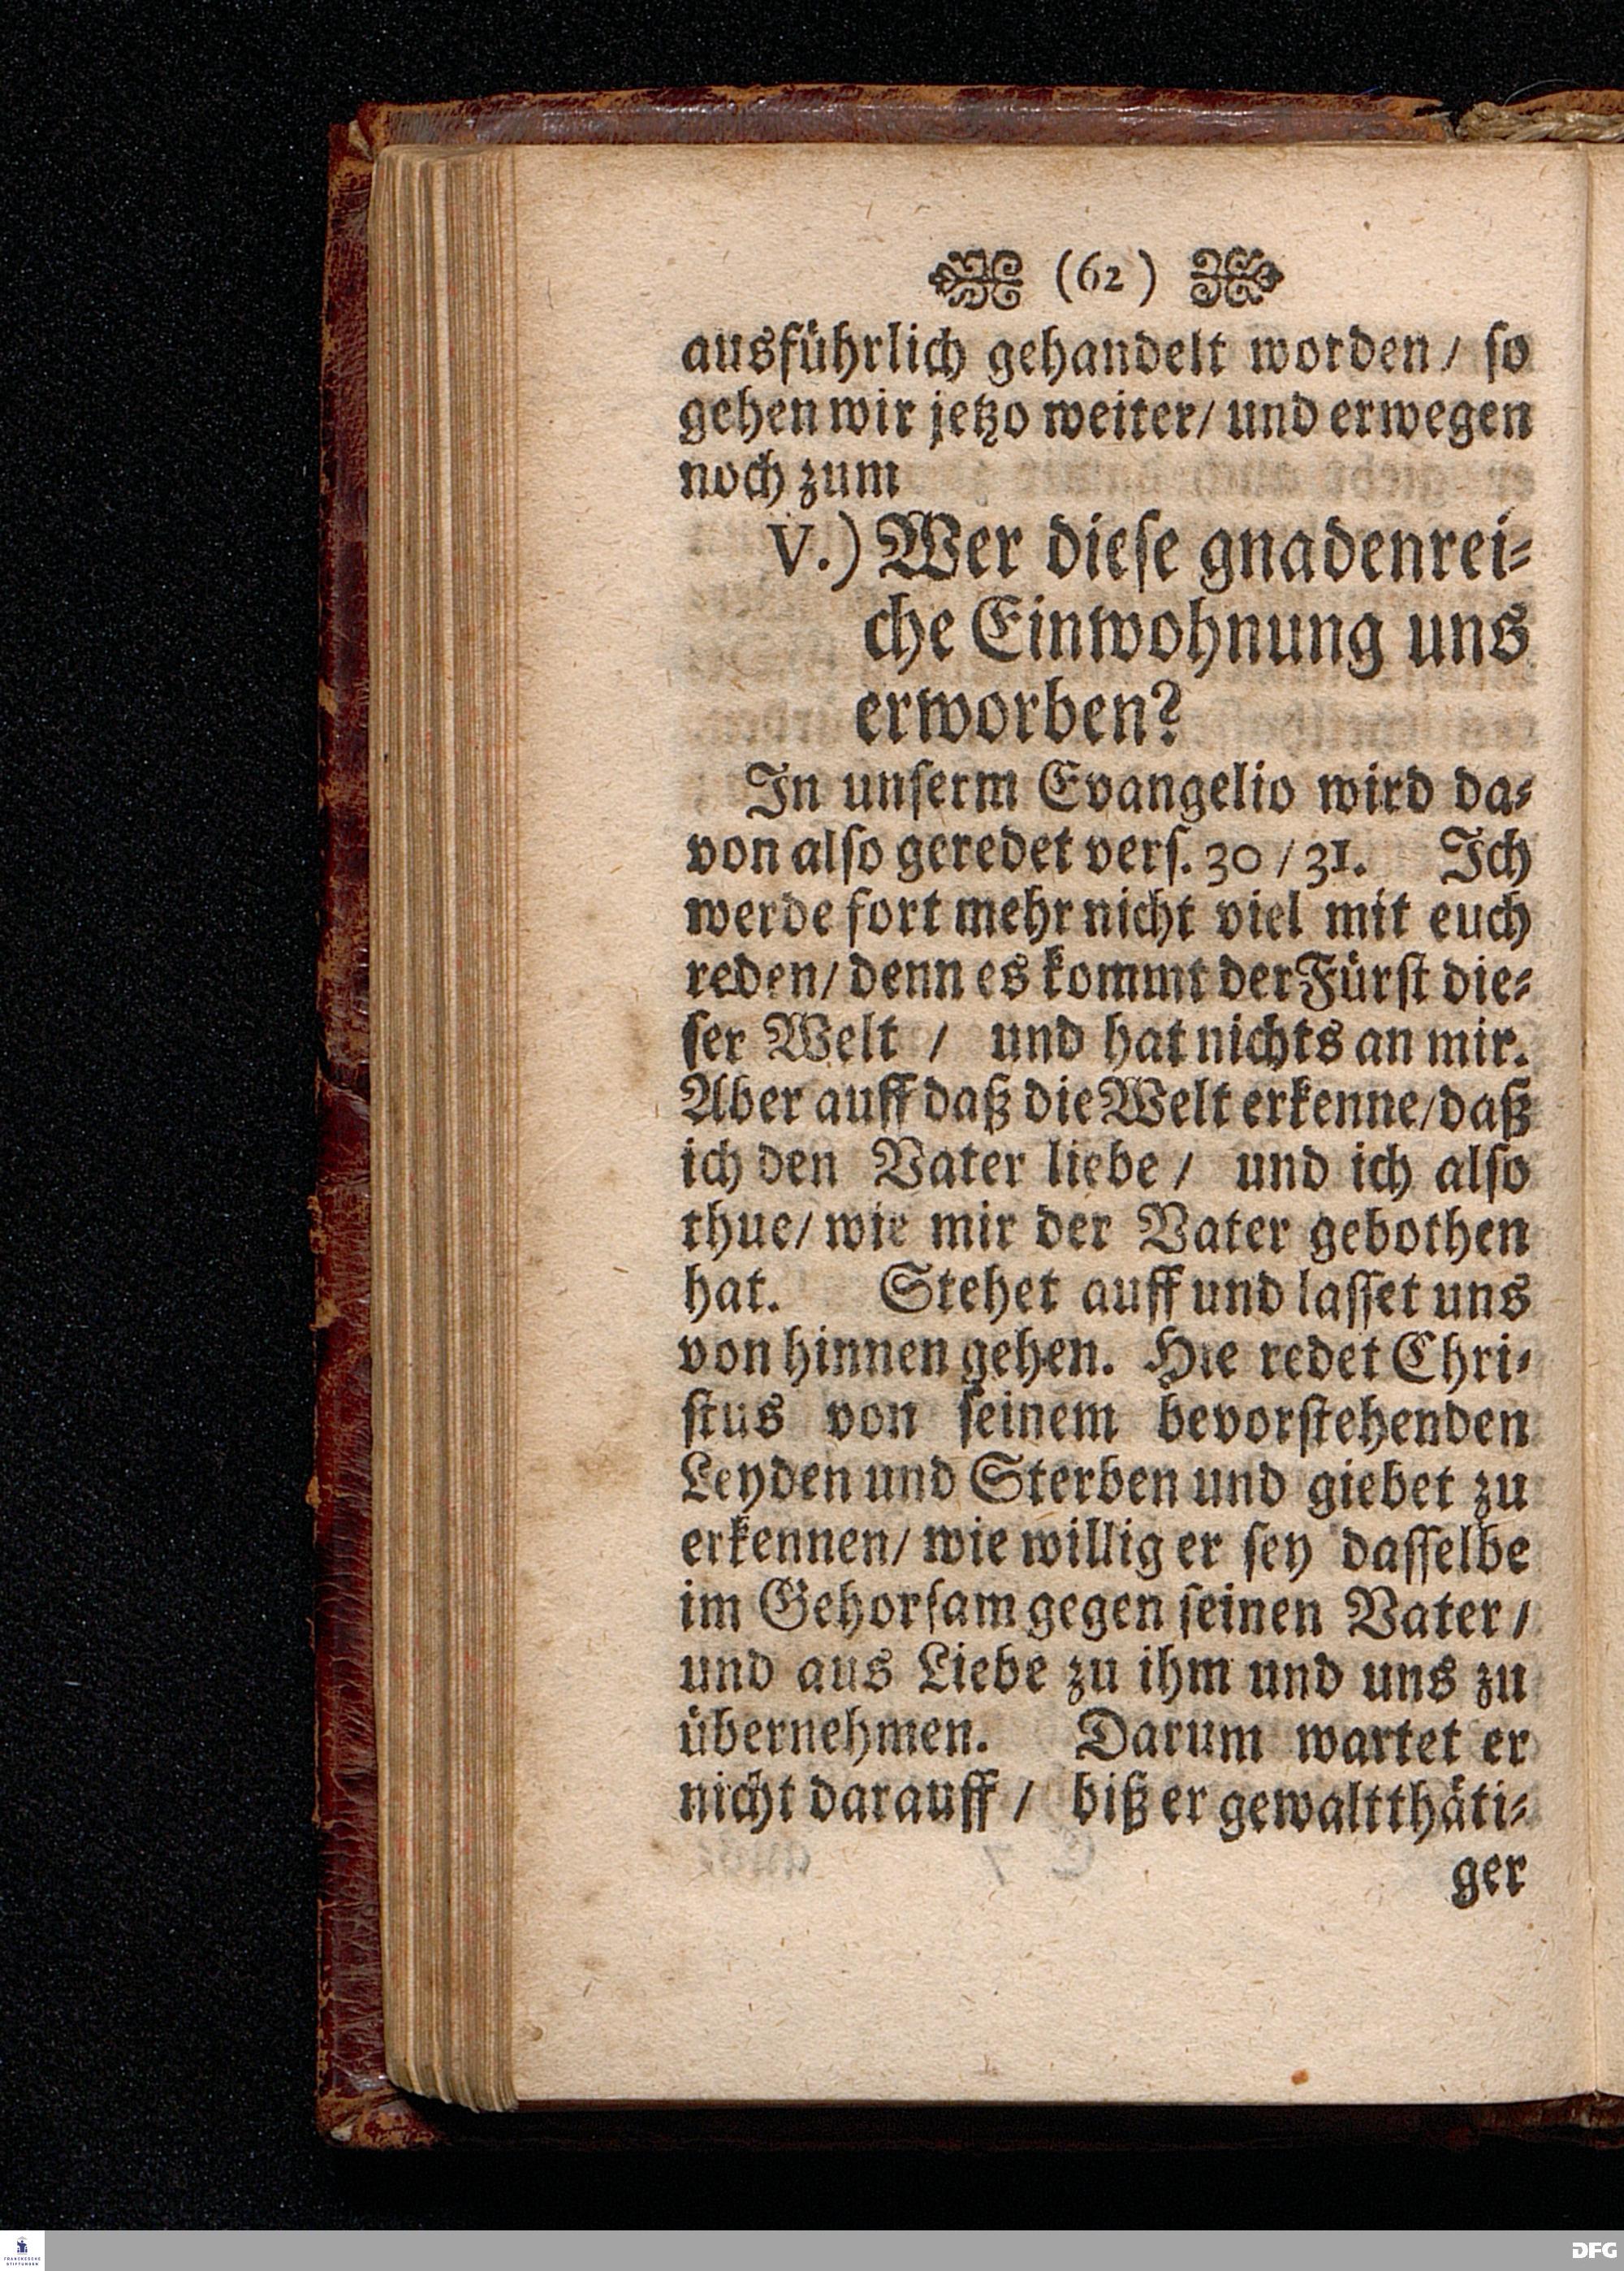 (62)
ausführlich gehandelt worden/ so
gehen wir jetzo weiter/ und erwegen
noch zum
V.) Wer diese gnadenrei-
che Einwohnung uns
erworben?
In unserm Evangelio wird da-
von also geredet vers. 30/31. Ich
werde fort mehr nicht viel mit euch
reden/ denn es kommt der Fürst die-
ser Welt / und hat nichts an mir.
Aber auff daß die Welt erkenne/ daß
ich den Vater liebe / und ich also
thue/ wie mir der Vater gebothen
hat. Stehet auff und lasset uns
von hinnen gehen. Hie redet Chri-
stus von seinem bevorstehenden
Leyden und Sterben und giebet zu
erkennen/ wie willig er sey dasselbe
im Gehorsam gegen seinen Vater/
und aus Liebe zu ihm und uns zu
übernehmen. Darum wartet er
nicht darauff / biß er gewaltthäti-
ger
FRANCKESCHE
STIFTUNGEN
DFG